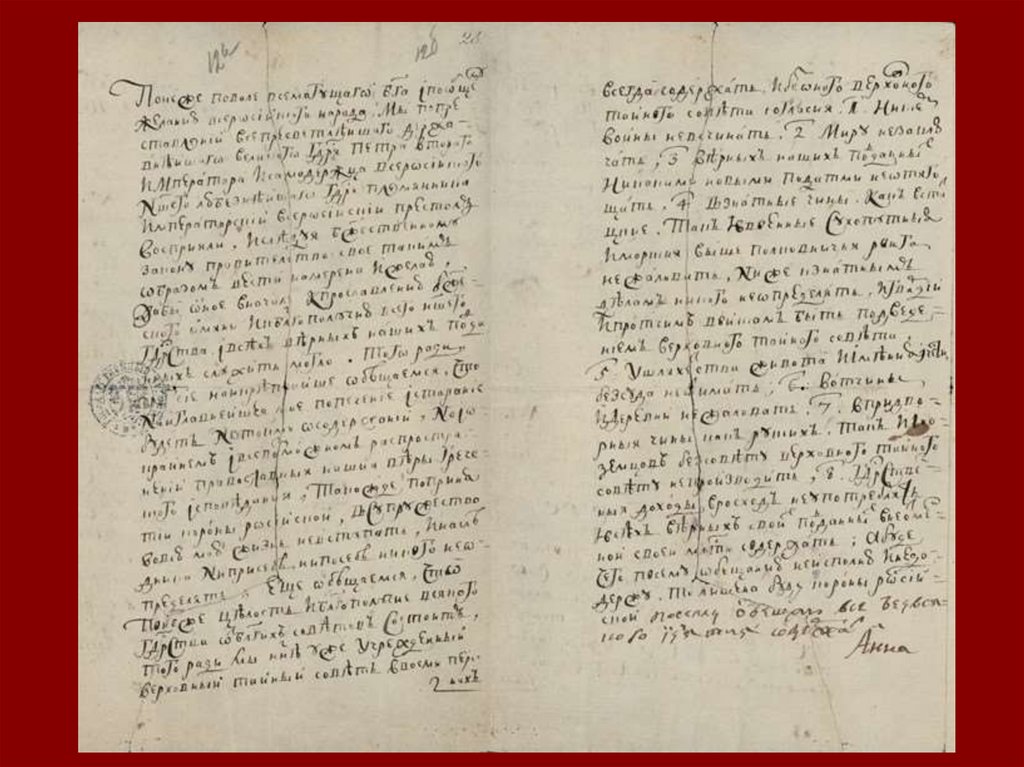 12а 12б 28
Понеже поволе всемагущагѡ бга ї пообще
желанию всеросиского народа. Мы попре
ставлениї всепресветлѣишаго держа
внѣишаго великого гдря Петра второго
Императора исамодержца всеросиского
ншего любезнѣишаго гдря племянника
императорскиї всеросискиї престолъ
восприяли. Иследуя бжественному
закону правителство свое такимъ
ѡбразомъ вести намерена ижелаю,
дабы ѡное вначале кпрославлению бже
ского имяни иблгополучию всего ншего
гдрства ївсехъ верныхъ нашихъ подда
нныхъ служить могло. Того ради,
наикрепчаише ѡбѣщаемся, что
наиглавнеишее мое попечение їстарание
будетъ нетокмо ѡсодержаниї, нои
краинемъ ївсевозможномъ распростра
нениї православныя нашия веры грече
ского їсповедания, такожде поприня
тиї короны росиской, всупружество
вовсю мою жизнь невступать, инаслѣ
дника ниприсебе нипосебе никого нео
пределять. Еще ѡбещаемся, что
понеже целость иблгополучие всякого
гдрства ѡтблагихъ советовъ состоитъ,
того ради мы ннѣ уже учрежденныї
верховныї таиныї советъ ввосми пер
2 нахъ
всегда содержать, ибезоного верховного
таиного совета согласия. 1. Нискемъ
воины невсчинать. 2. Миру незаклю
чать, 3 верныхъ нашихъ подданныхъ
никакими новыми податми неотяго
щать. 4. Взнатные чины, какъ вста
цкие, такъ ивоенные сухопутныя
иморския выше полковничья ранга
нежаловать, ниже кзнатнымъ
деламъ никого неопределять, игвардиї
ипротчимъ воискамъ быть подведе
ниемъ верховного таиного совета
5. Ушляхетства живота иимения ичести
безсуда неотымать, 6. вотчины,
идеревни нежаловать, 7. впридво
рныя чины какъ руских, такъ иино
земцовъ безсовету верховного таиного
совету непроизводить, 8. гдрстве
ныя доходы врасходъ неупотреблять
ивсехъ верныхъ своихъ подданныхъ внеотме
нной своеи млсти содержать; абуде
чего посему ѡбещанию неисполню инедо
держу, толишена буду короны росиї
ской посему обещаю все безвся
кого изятия содержать
Анна